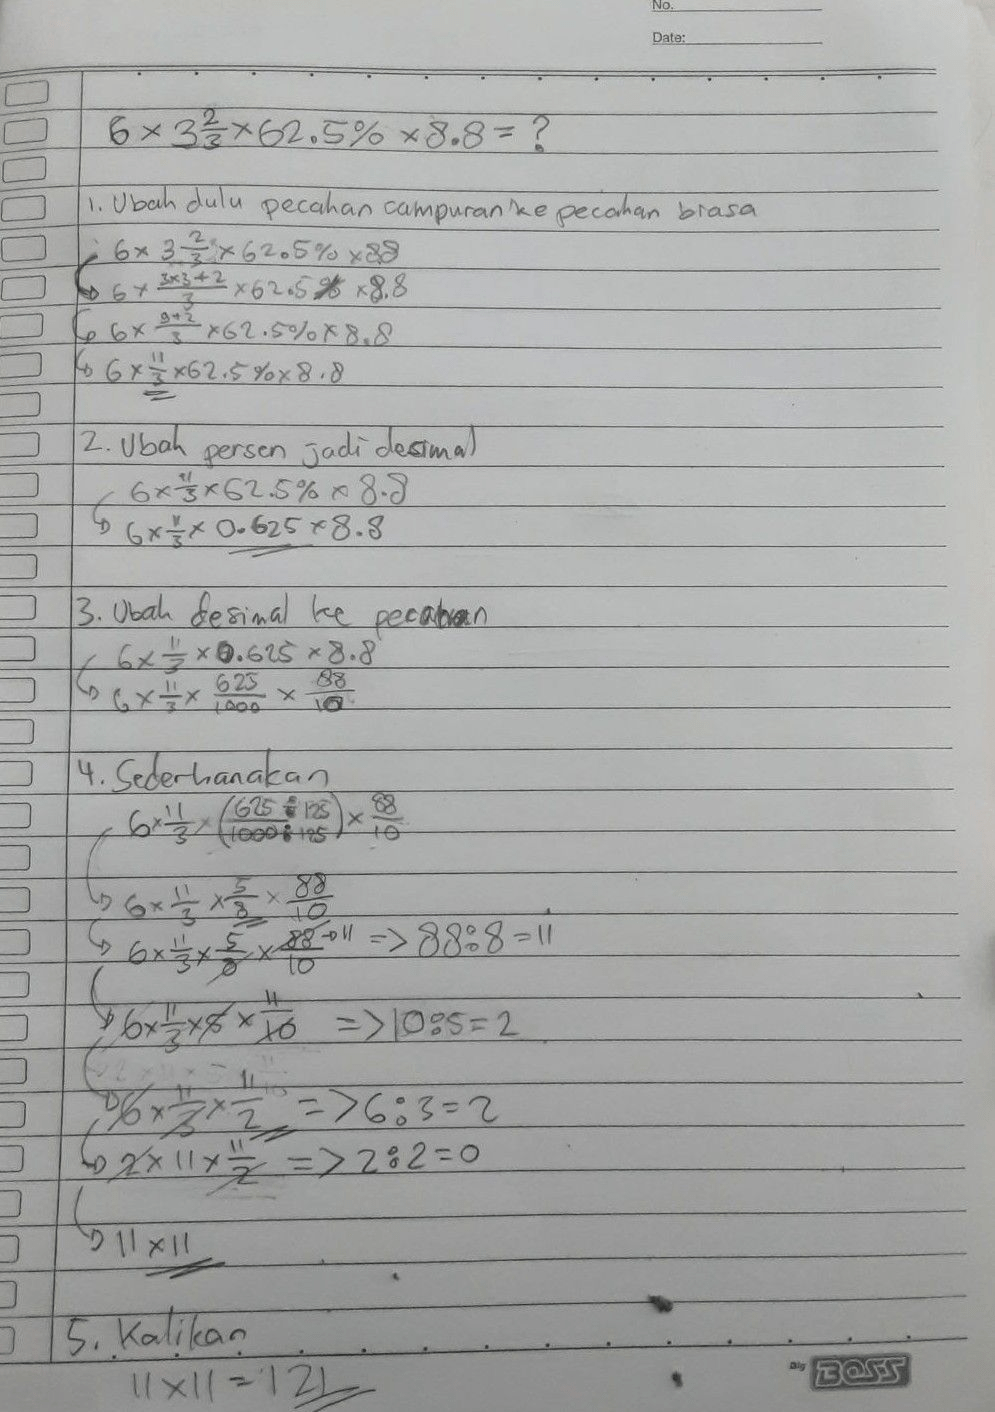 No.
Date:
6 × 3 2/3 × 62.5% × 8.8 = ?
1. Ubah dulu pecahan campuran ke pecahan biasa
6 × 3 2/3 × 62.5% × 88
6 × 3×3+2/3 × 62.5% × 8.8
6 × 9+2/3 × 62.5% × 8.8
6 × 11/3 × 62.5% × 8.8
2. Ubah persen jadi desimal
6 × 11/3 × 62.5% × 8.8
6 × 11/3 × 0.625 × 8.8
3. Ubah desimal ke pecahan
6 × 11/3 × 0.625 × 8.8
6 × 11/3 × 625/1000 × 88/10
4. Sederhanakan
6 × 11/3 × (625:125/1000:125) × 88/10
6 × 11/3 × 5/8 × 88/10
6 × 11/3 × 5/8 × 88→11/10 => 88:8=11
6 × 11/3 × 5 × 11/10 => 10:5=2
6 × 11/3 × 11/2 => 6:3=2
2 × 11 × 11/2 => 2:2=0
11 × 11
5. Kalikan
11 × 11 = 121
Big BOSS